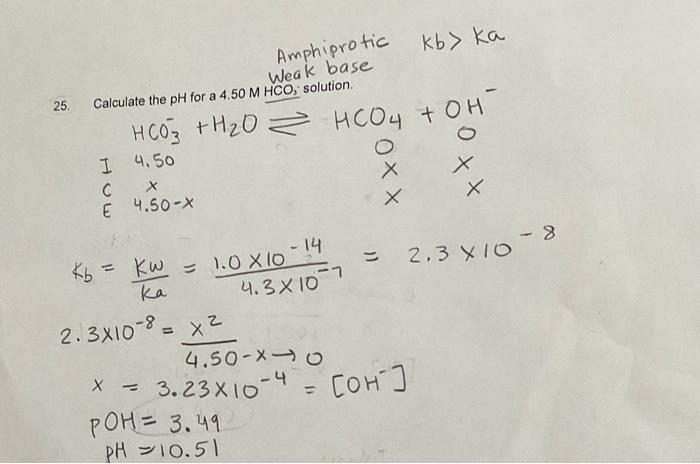 Amphiprotic Kb > Ka
Weak base
25. Calculate the pH for a 4.50 M HCO₃⁻ solution.
HCO₃⁻ + H₂O ⇌ HCO4 + OH⁻
I 4.50 O O
C x x x
E 4.50-x x x
Kb = Kw/Ka = 1.0 x 10⁻¹⁴ / 4.3 x 10⁻⁷ = 2.3 x 10⁻⁸
2.3x10⁻⁸ = x² / 4.50-x → 0
x = 3.23 x 10⁻⁴ = [OH⁻]
pOH = 3.49
pH = 10.51